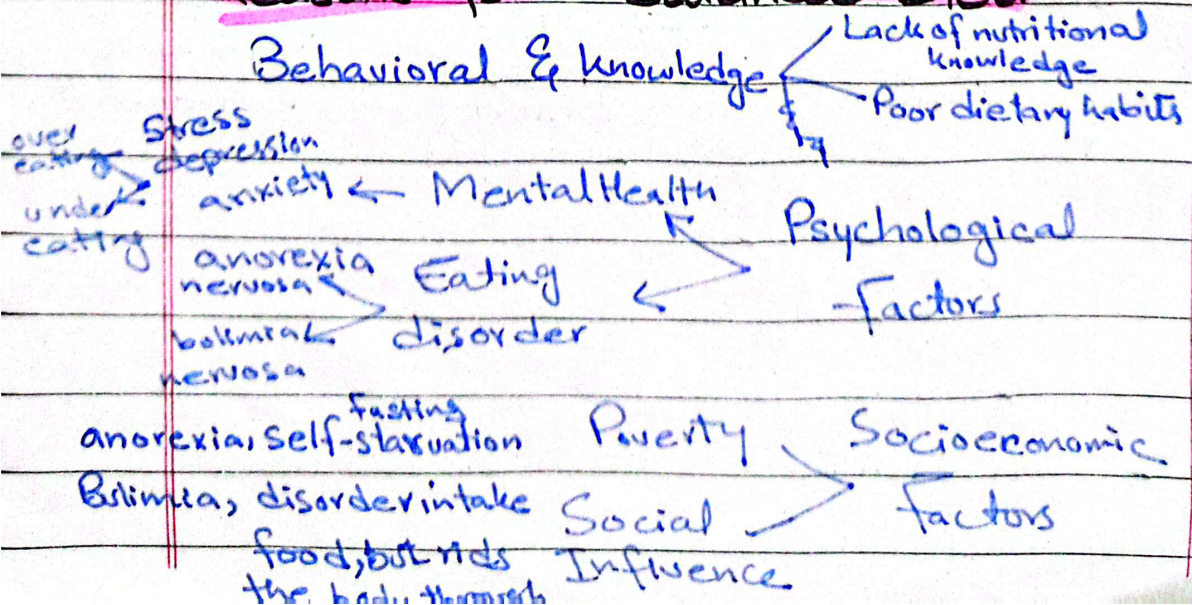 Behavioral & Knowledge
Lack of nutritional
knowledge
Poor dietary habits
over
eating
under
eating
Stress
depression
anxiety
Mental Health
Psychological
Factors
anorexia
nervosa
bolimia
nervosa
Eating
disorder
fasting
anorexia, self-starvation
Bulimia, disorder intake
food, but rids
the body through
Poverty
Social
Influence
Socioeconomic
Factors